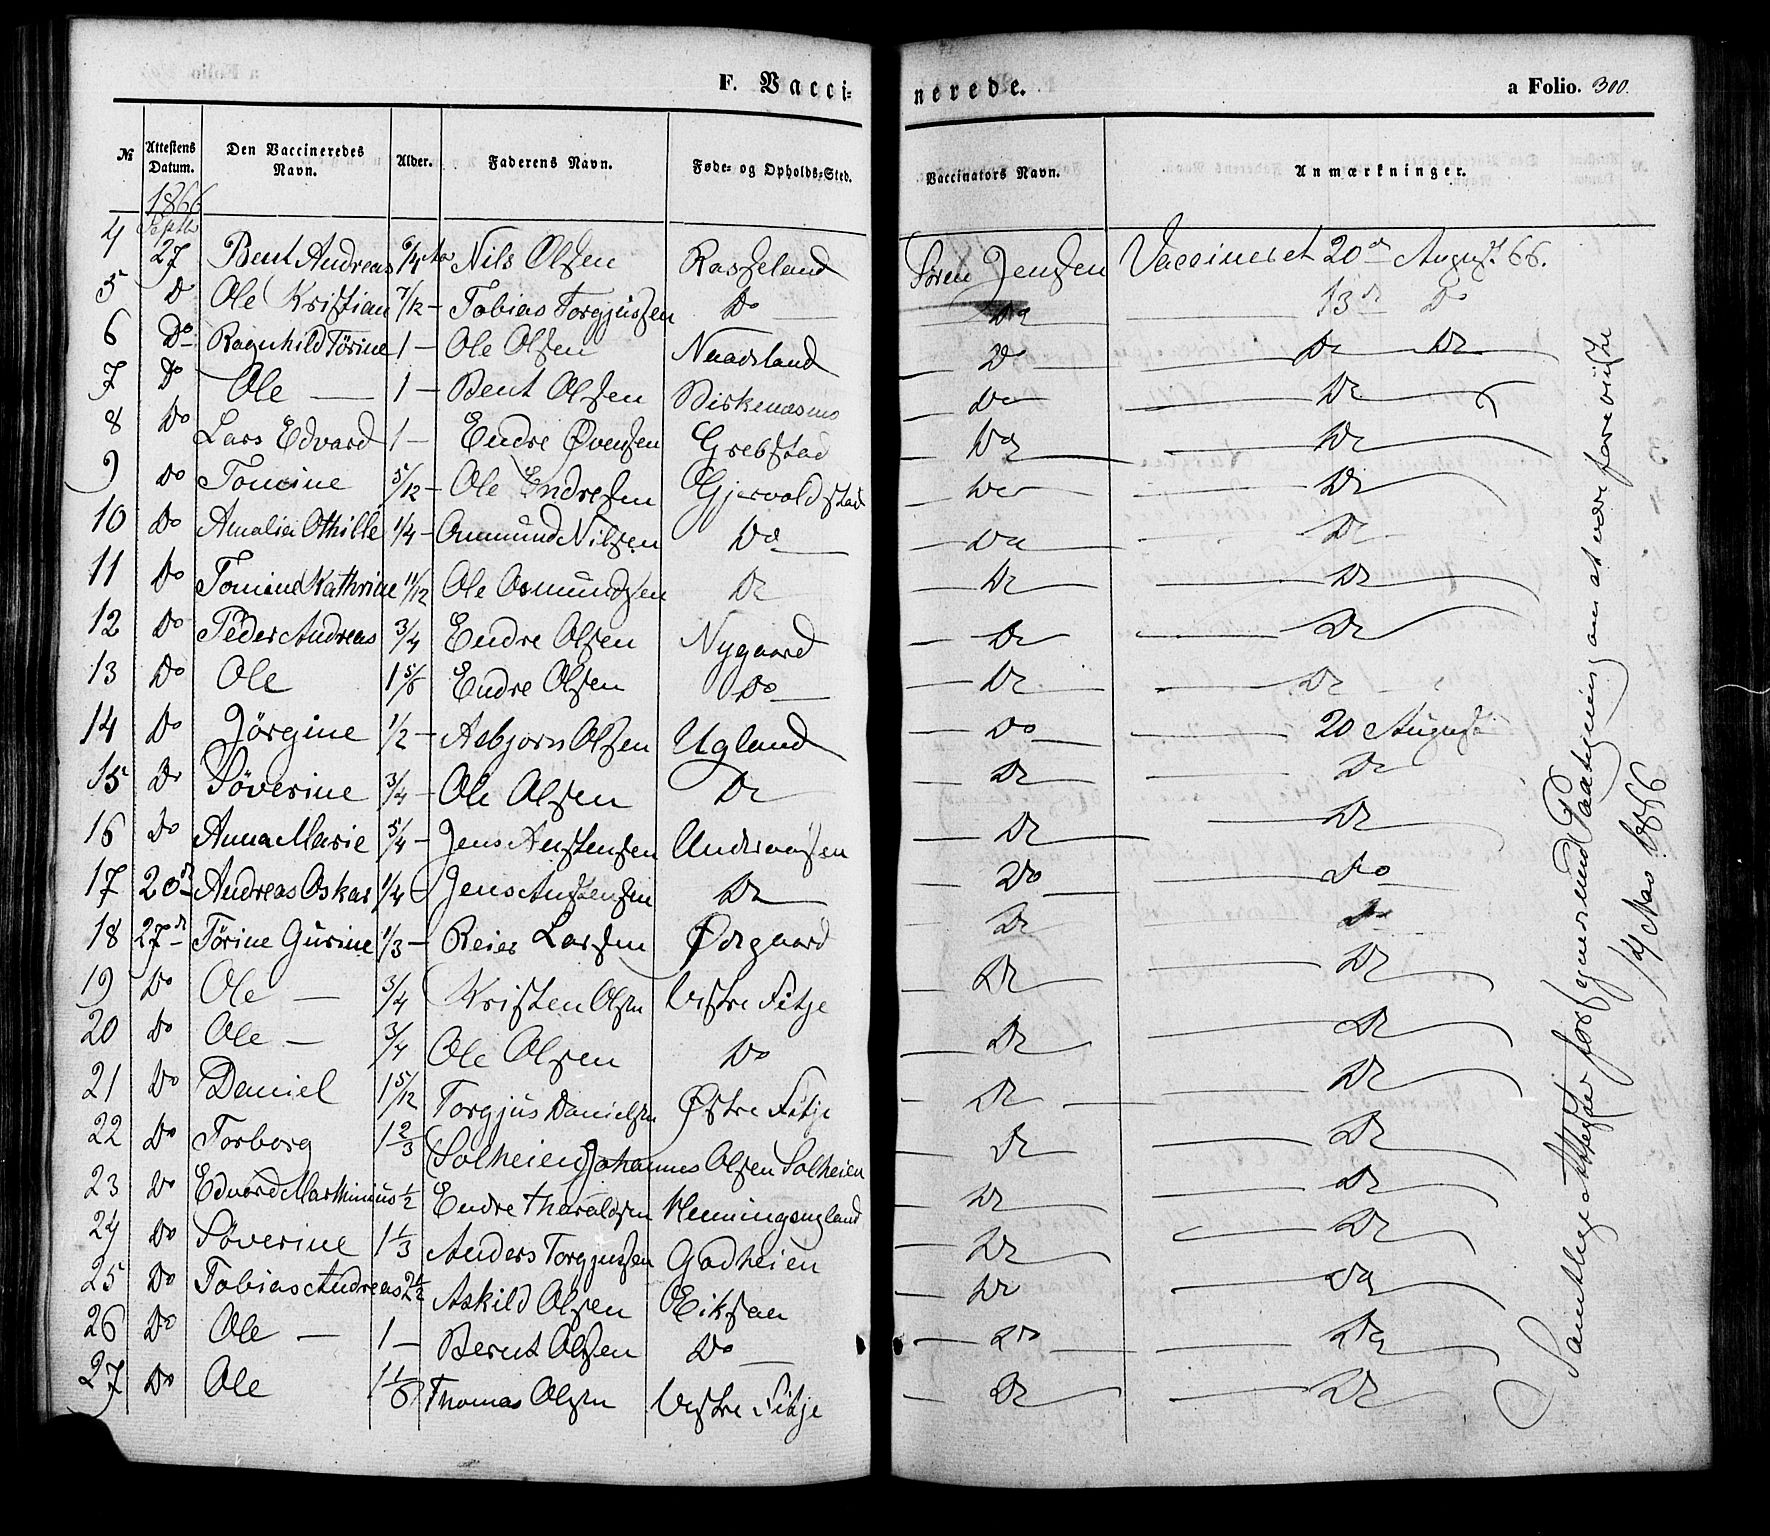 F. Vacci-
nerede.
a Folio. 300.
№ Attestens Datum. Den Vaccineredes Navn. Alder. Faderens Navn. Føde- og Opholds-Sted. Vaccinators Navn. Anmærkninger.
1866
Septbr
4 27 Bent Andreas 6/4 Aar Nils Olsen Rosseland Søren Jensen Vaccineret 20de August 66.
5 Do Ole Kristian 7/12 – Tobias Torgjussen Do Do 13de Do
6 Do Ragnhild Tørine 1 – Ole Olsen Naadsland Do Do Do
7 Do Ole — 1 – Bent Olsen Birkenæsmo Do Do
8 Do Lars Edvard 1 – Endre Øvensen Grebstad Do Do
9 Do Tomine 5/12 – Ole Endresen Gjervoldstad Do Do
10 Do Amalia Othille 1/4 – Omund Nilsen Do Do Do
11 Do Tomine Kathrine 11/12 Ole Osmundsen Do Do Do
12 Do Peder Andreas 3/4 Endre Olsen Nygaard Do Do
13 Do Ole 1 5/6 Endre Olsen Do Do Do
14 Do Jørgine 1/2 – Asbjorn Olsen Ugland Do 20 August
15 Do Søverine 3/4 – Ole Olsen Do Do Do
16 Do Anna Marie 5/4 – Jens Austensen Underaasen Do Do
17 20de Andreas Oskar 1/4 Jens Austensen Do Do Do
18 27de Tørine Gurine 1/3 – Reier Larsen Ødegaard Do Do
19 Do Ole — 3/4 Kristen Olsen Vestre Fitje Do Do
20 Do Ole — 3/4 Ole Olsen Do Do Do
21 Do Daniel 1 5/12 Torgjus Danielsen Østre Fitje Do Do
22 Do Torborg 1 2/3 (Solheien) Johannes Olsen Solheien Do Do
23 Do Edvard Marthinius 1/2 Endre Tharaldsen Henningsugland Do Do
24 Do Søverine 1 1/3 Anders Torgjussen Godheien Do Do
25 Do Tobias Andreas 2 1/2 Askild Olsen Eiksaa Do Do
26 Do Ole — 1 – Bernt Olsen Do Do Do
27 Do Ole 1 1/6 Thomas Olsen Vestre Fitje Do Do
Samtlige Attester forsynes med Paategning om at være foreviiste
14 Mai 1866